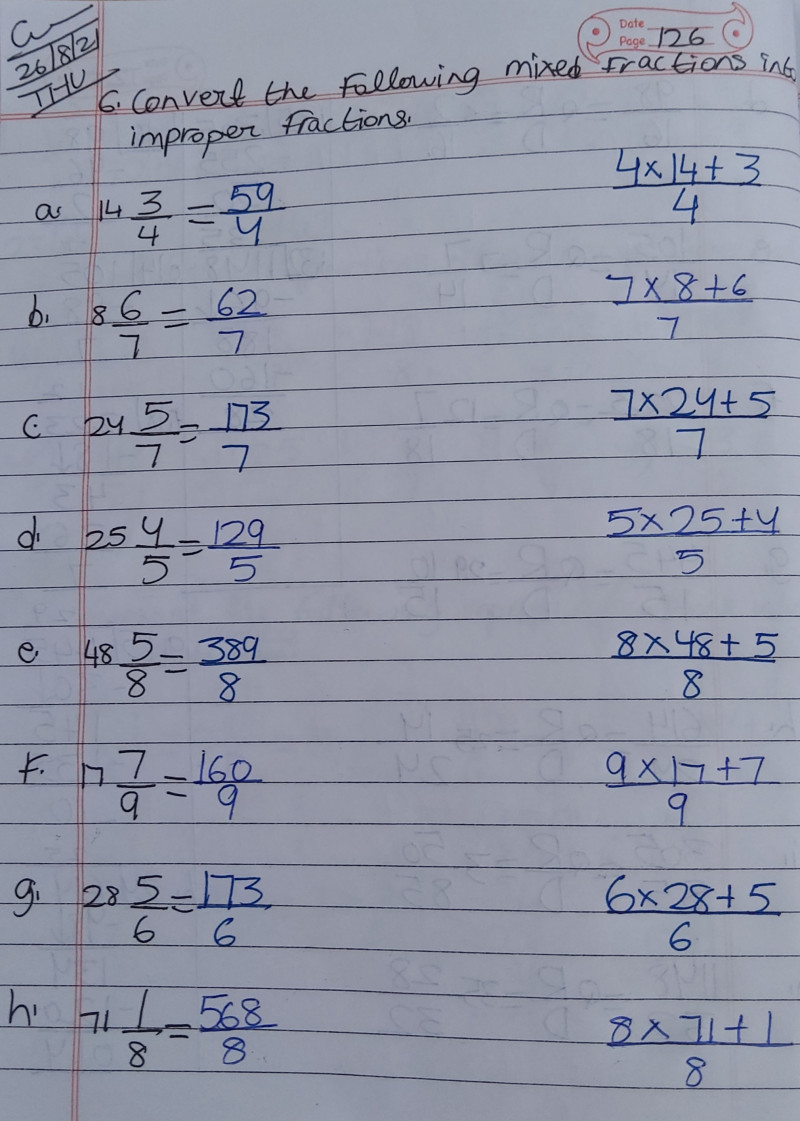 CW
26/8/21
THU
Date
Page 126
6. Convert the following mixed fractions into
improper fractions.
a. 14 3/4 = 59/4    4×14+3/4
b. 8 6/7 = 62/7    7×8+6/7
c. 24 5/7 = 173/7    7×24+5/7
d. 25 4/5 = 129/5    5×25+4/5
e. 48 5/8 = 389/8    8×48+5/8
f. 17 7/9 = 160/9    9×17+7/9
g. 28 5/6 = 173/6    6×28+5/6
h. 71 1/8 = 568/8    8×71+1/8